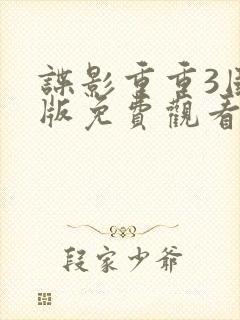 諜影重重3
版免費觀看
段家少爺